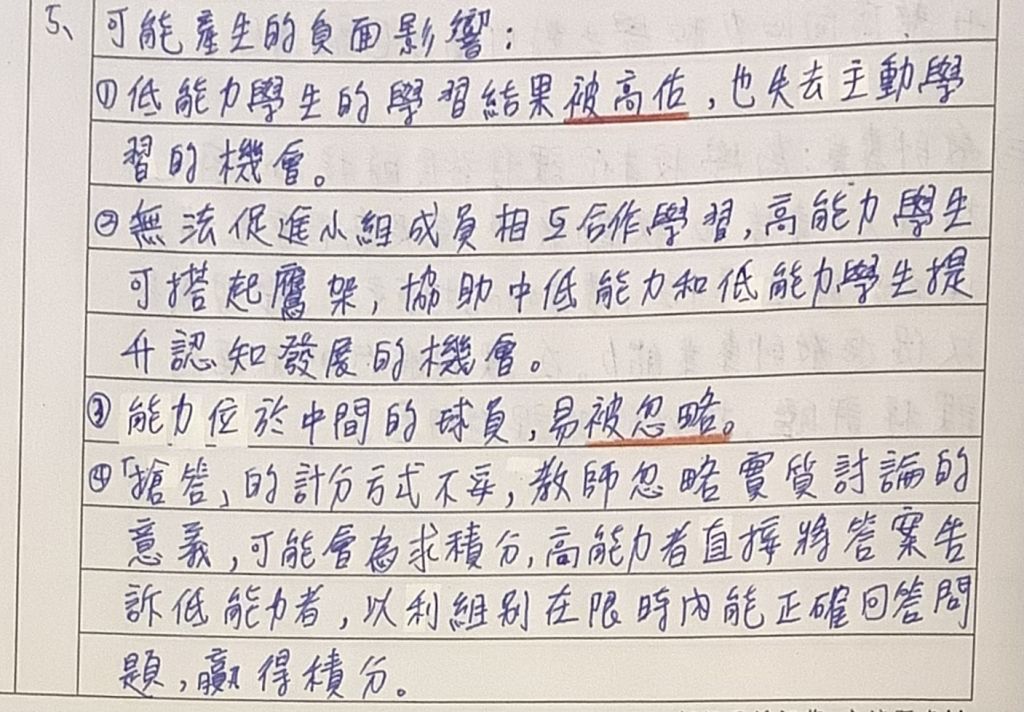 5、可能產生的負面影響：
①低能力學生的學習結果被高估，也失去主動學
習的機會。
②無法促進小組成員相互合作學習，高能力學生
可搭起鷹架，協助中低能力和低能力學生提
升認知發展的機會。
③能力位於中間的球員，易被忽略。
④「搶答」的計分方式不妥，教師忽略實質討論的
意義，可能會為求積分，高能力者直接將答案告
訴低能力者，以利組別在限時內能正確回答問
題，贏得積分。